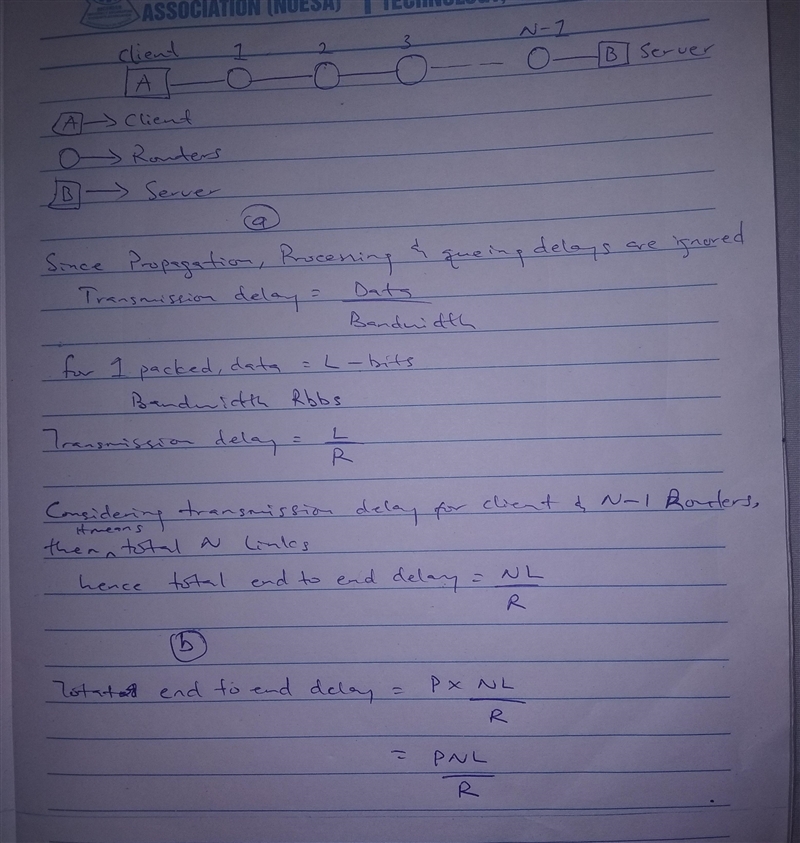 ASSOCIATION (NUESA)
Client 1 2 3 N-1
A B Server
A → Client
O → Routers
B → Server
(a)
Since Propagation, Processing & queing delays are ignored
Transmission delay = Data
Bandwidth
for 1 packed, data = L-bits
Bandwidth Rbbs
Transmission delay = L
R
Considering transmission delay for client & N-1 Routers,
it means
then total N links
hence total end to end delay = NL
R
(b)
end to end delay = P x NL
R
= PNL
R